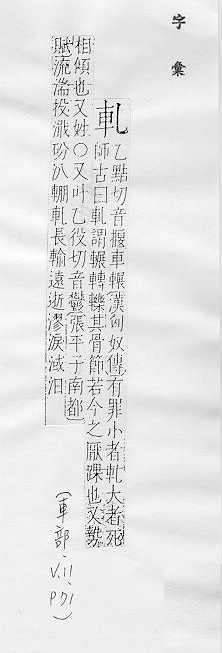 字彙
軋
乙黠切音揠車輾漢匈奴傳有罪小者軋大者死
師古曰軋謂輾轉轢其骨節若今之厭踝也又勢
相傾也又姓○又叶乙役切音鬱張平子南都
賦流湍投濈砏汃輣軋長輸遠逝漻淚淢汩
(車部. V.11. P71)